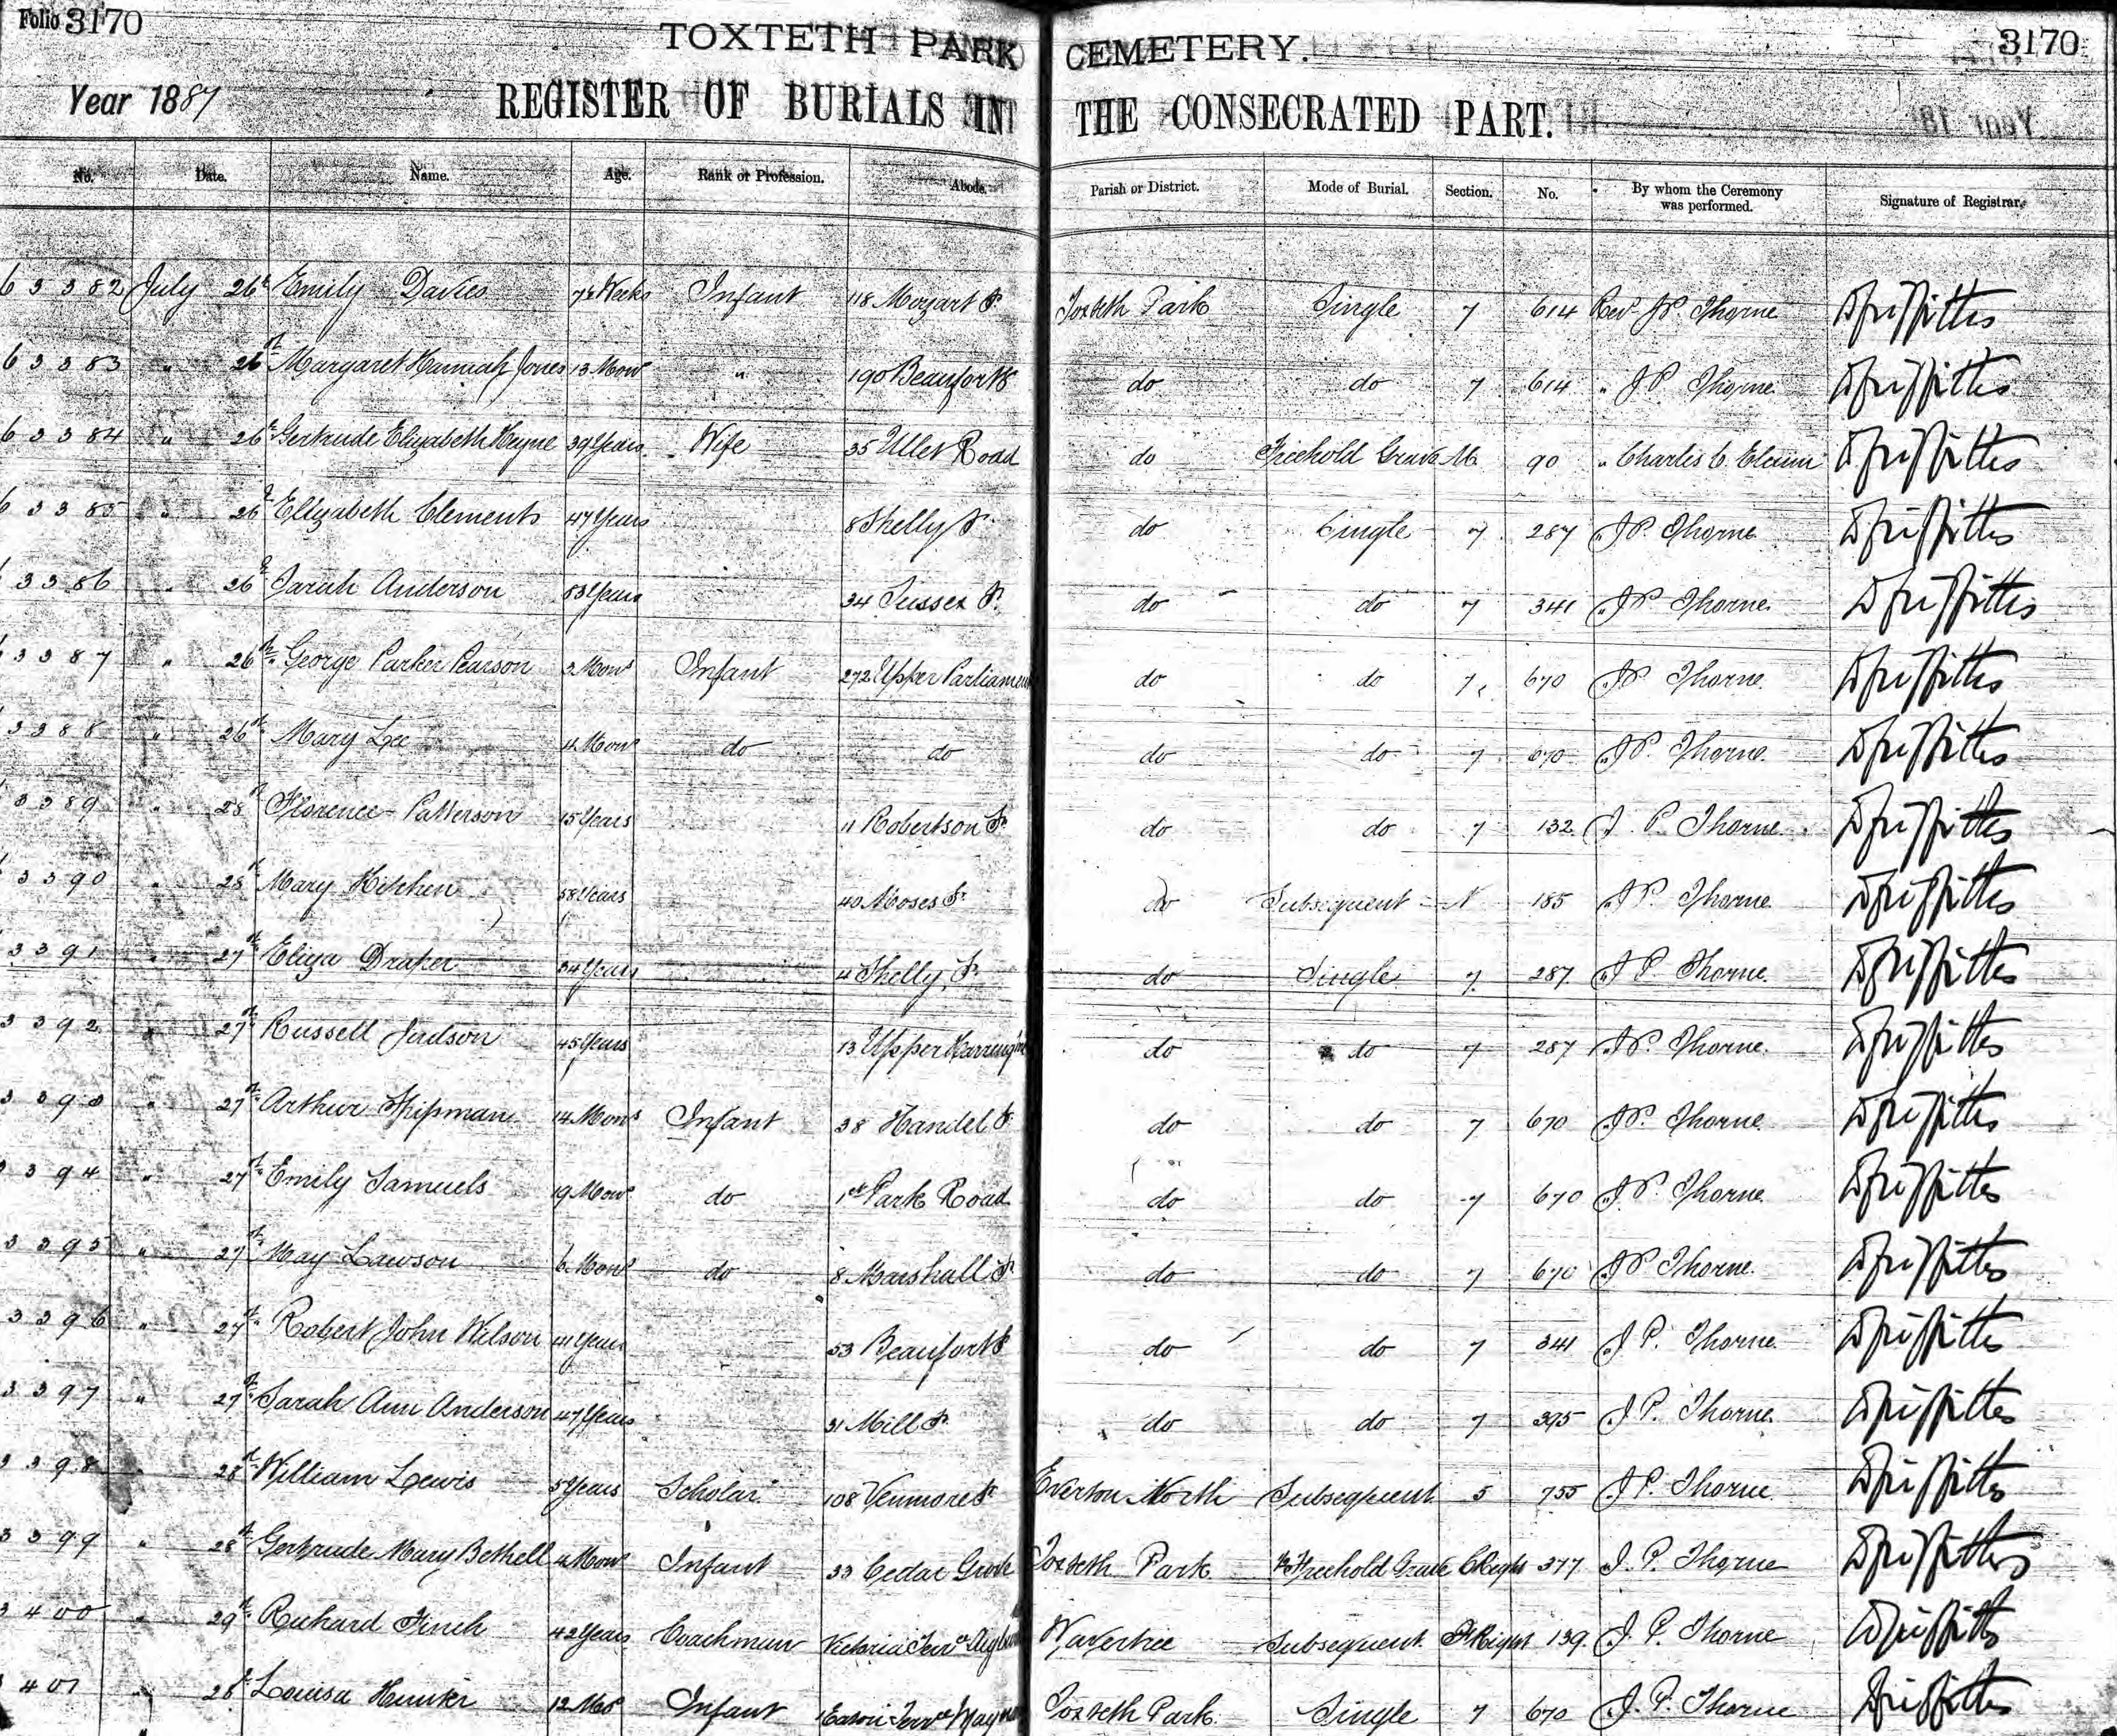 Folio 3170 TOXTETH PARK CEMETERY. 3170
Year 1887 REGISTER OF BURIALS IN THE CONSECRATED PART.
No. Date. Name. Age. Rank or Profession. Abode. Parish or District. Mode of Burial. Section. No. By whom the Ceremony was performed. Signature of Registrar.
63382 July 26th Emily Davies 7½ Weeks Infant 118 Mozart St Toxteth Park Single 7 614 Revd J P Thorne D Griffiths
63383 " 26th Margaret Hannah Jones 13 Mons " 190 Beaufort St do do 7 614 " J P Thorne D Griffiths
63384 " 26th Gertrude Elizabeth Heyne 39 Years Wife 35 Ullet Road do Freehold Grave M 90 " Charles C D Griffiths
63385 " 26th Elizabeth Clements 47 Years 8 Shelly St do Single 7 287 " J P Thorne D Griffiths
3386 " 26th Sarah Anderson 53 Years 34 Sussex St do do 7 341 " J P Thorne D Griffiths
3387 " 26th George Parker Pearson 3 Mons Infant 272 Upper Parliament do do 7 670 " J P Thorne D Griffiths
3388 " 26th Mary Lee 4 Mons do do do do 7 670 " J P Thorne D Griffiths
3389 " 28th Florence Patterson 15 Years 11 Robertson St do do 7 132 " J. P. Thorne D Griffiths
3390 " 28th Mary Kitchen 58 Years 40 Moses St do Subsequent N 185 " J P Thorne D Griffiths
3391 " 27th Eliza Draper 34 Years 4 Shelly St do Single 7 287 " J P Thorne D Griffiths
3392 " 27th Russell Judson 45 Years 13 Upper Harrington do do 7 287 " J P Thorne D Griffiths
3393 " 27th Arthur Shipman 14 Mons Infant 38 Handel St do do 7 670 " J P Thorne D Griffiths
3394 " 27th Emily Samuels 19 Mons do Park Road do do 7 670 " J P Thorne D Griffiths
3395 " 27th May Lawson 6 Mons do 8 Marshall St do do 7 670 " J P Thorne D Griffiths
3396 " 27th Robert John Wilson 41 Years 53 Beaufort St do do 7 341 " J P Thorne D Griffiths
3397 " 27th Sarah Ann Anderson 47 Years 31 Mill St do do 7 395 " J P Thorne D Griffiths
3398 " 28th William Lewis 5 Years Scholar 108 Venmore St Everton North Subsequent 5 755 " J P Thorne D Griffiths
3399 " 28th Gertrude Mary Bethell 4 Mons Infant 33 Cedar Grove Toxteth Park Freehold Grave C Right 377 " J. P. Thorne D Griffiths
3400 " 29th Richard Finch 42 Years Coachman Victoria Terrce Wavertree Subsequent Right 139 " J. P. Thorne D Griffiths
401 " 28th Louisa Hunter 12 Mos Infant Eaton Terrce Toxteth Park Single 7 670 " J. P. Thorne D Griffiths